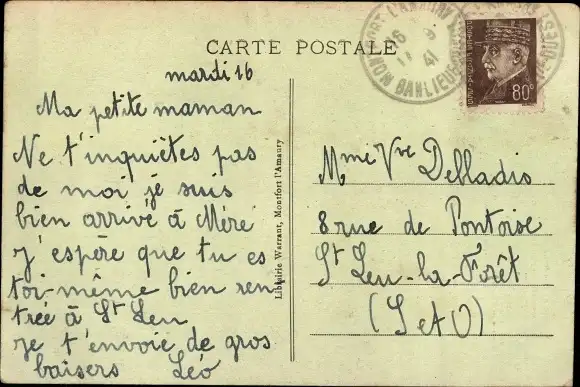 CARTE POSTALE
mardi 16
Ma petite maman
Ne t'inquiètes pas
de moi je suis
bien arrivé à Méré
J'espère que tu es
toi-même bien ren
trée à St Leu
je t'envoie de gros
baisers Léo
Librairie Warrant, Montfort l'Amaury
MONTFORT L'AMAURY
16 9
41
80c
Mme Vve Delladis
8 rue de Pontoise
St Leu-la-Forêt
(S et O)